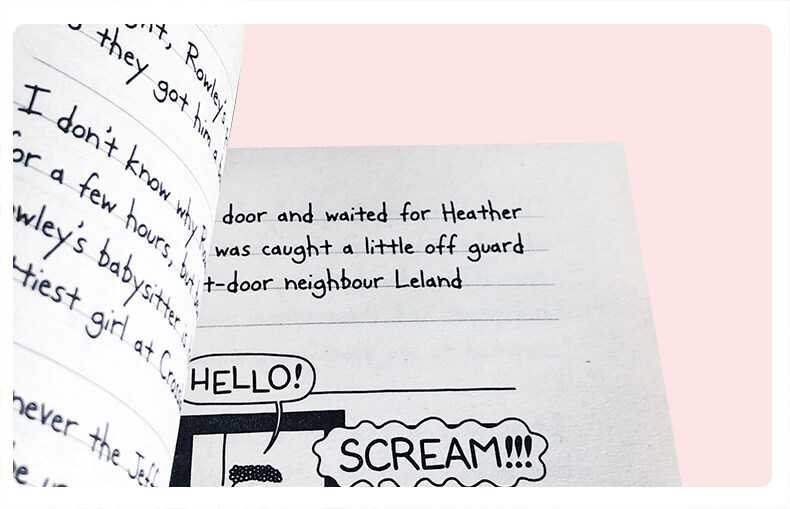 they got him a
I don't know why
for a few hours, but
Rowley's babysitter is
girl at
the Jeff
door and waited for Heather
was caught a little off guard
t-door neighbour Leland
HELLO!
SCREAM!!!